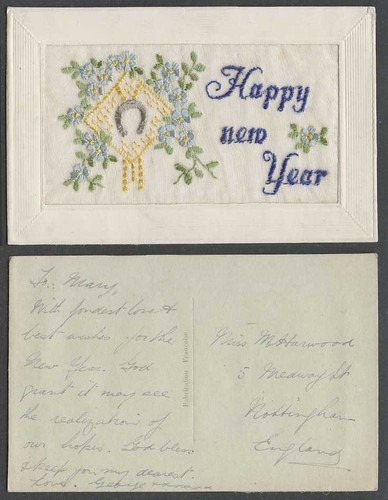 Happy
new
Year
To Mary,
With fondest love &
best wishes for the
New Year. God
grant it may see
the realization of
our hopes. God bless
& keep you, my dearest.
Love. George
Fabrication Française
Miss M Harwood
5 Medway St
Nottingham
England